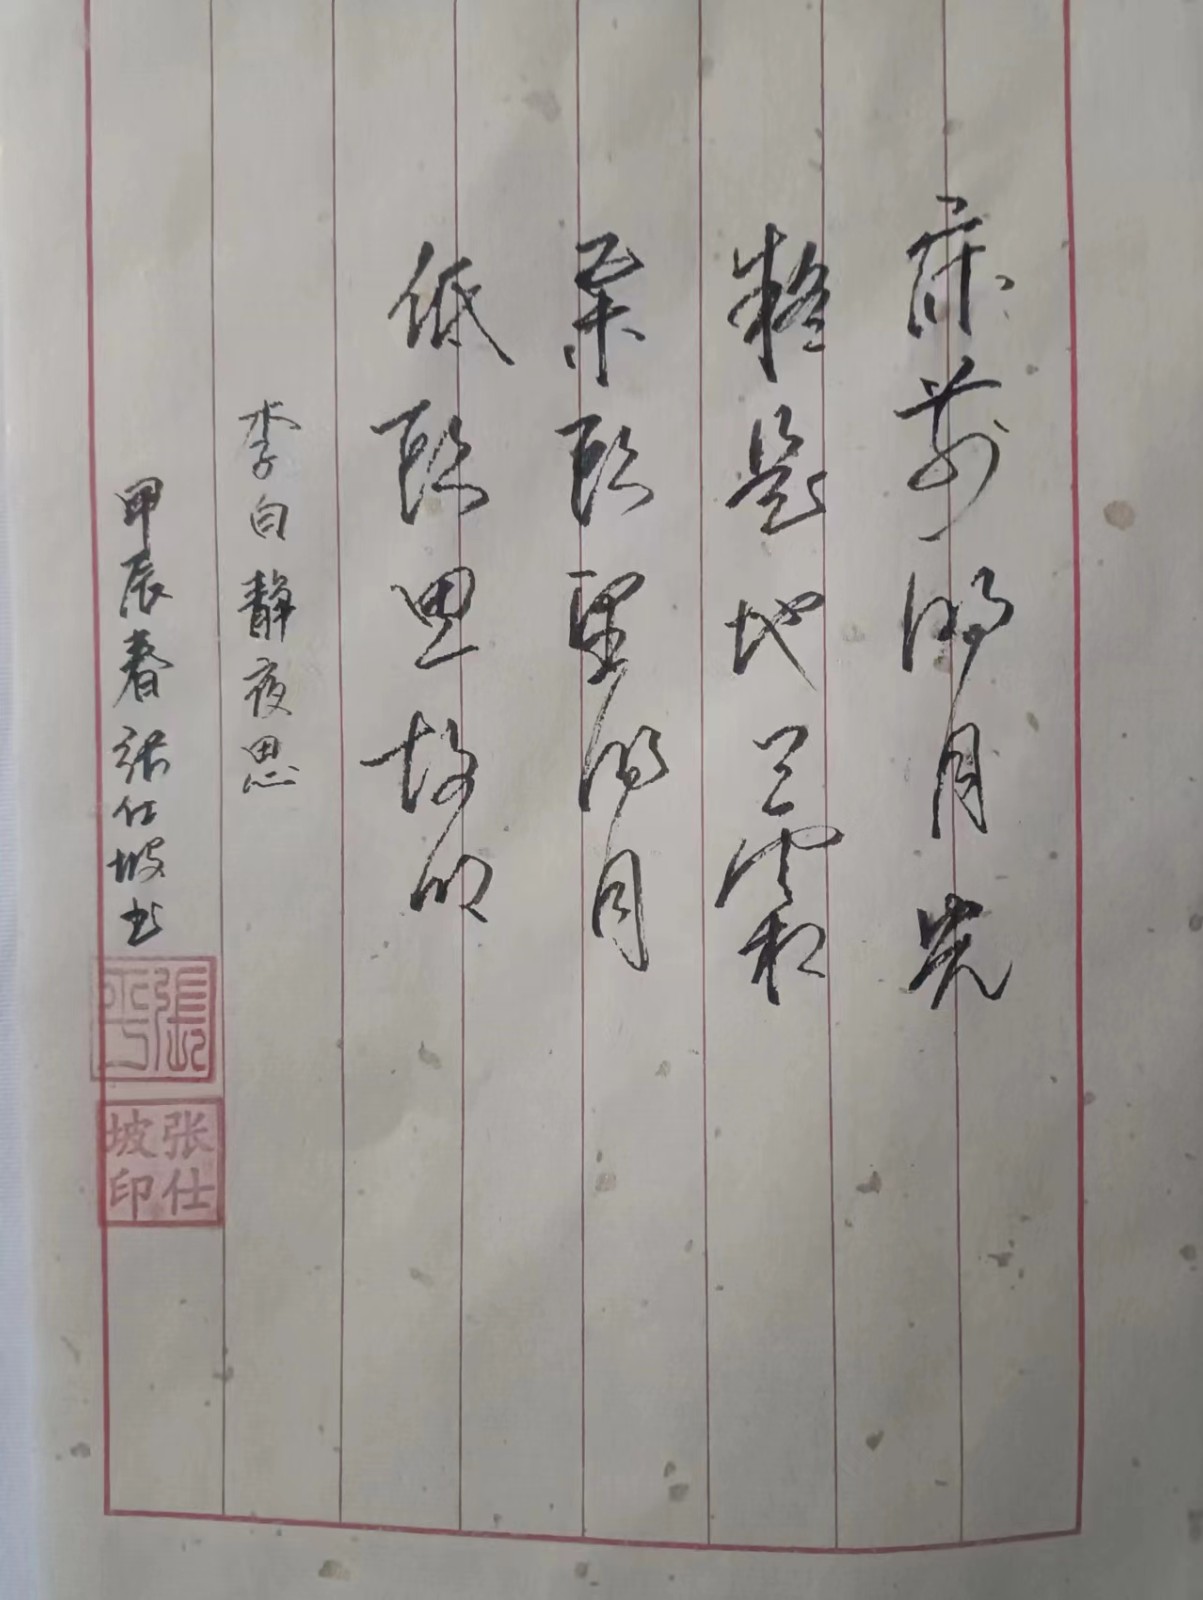 床前明月光
疑是地上霜
举头望明月
低头思故乡
李白静夜思
甲辰春张仕坡书
張
张仕
坡印